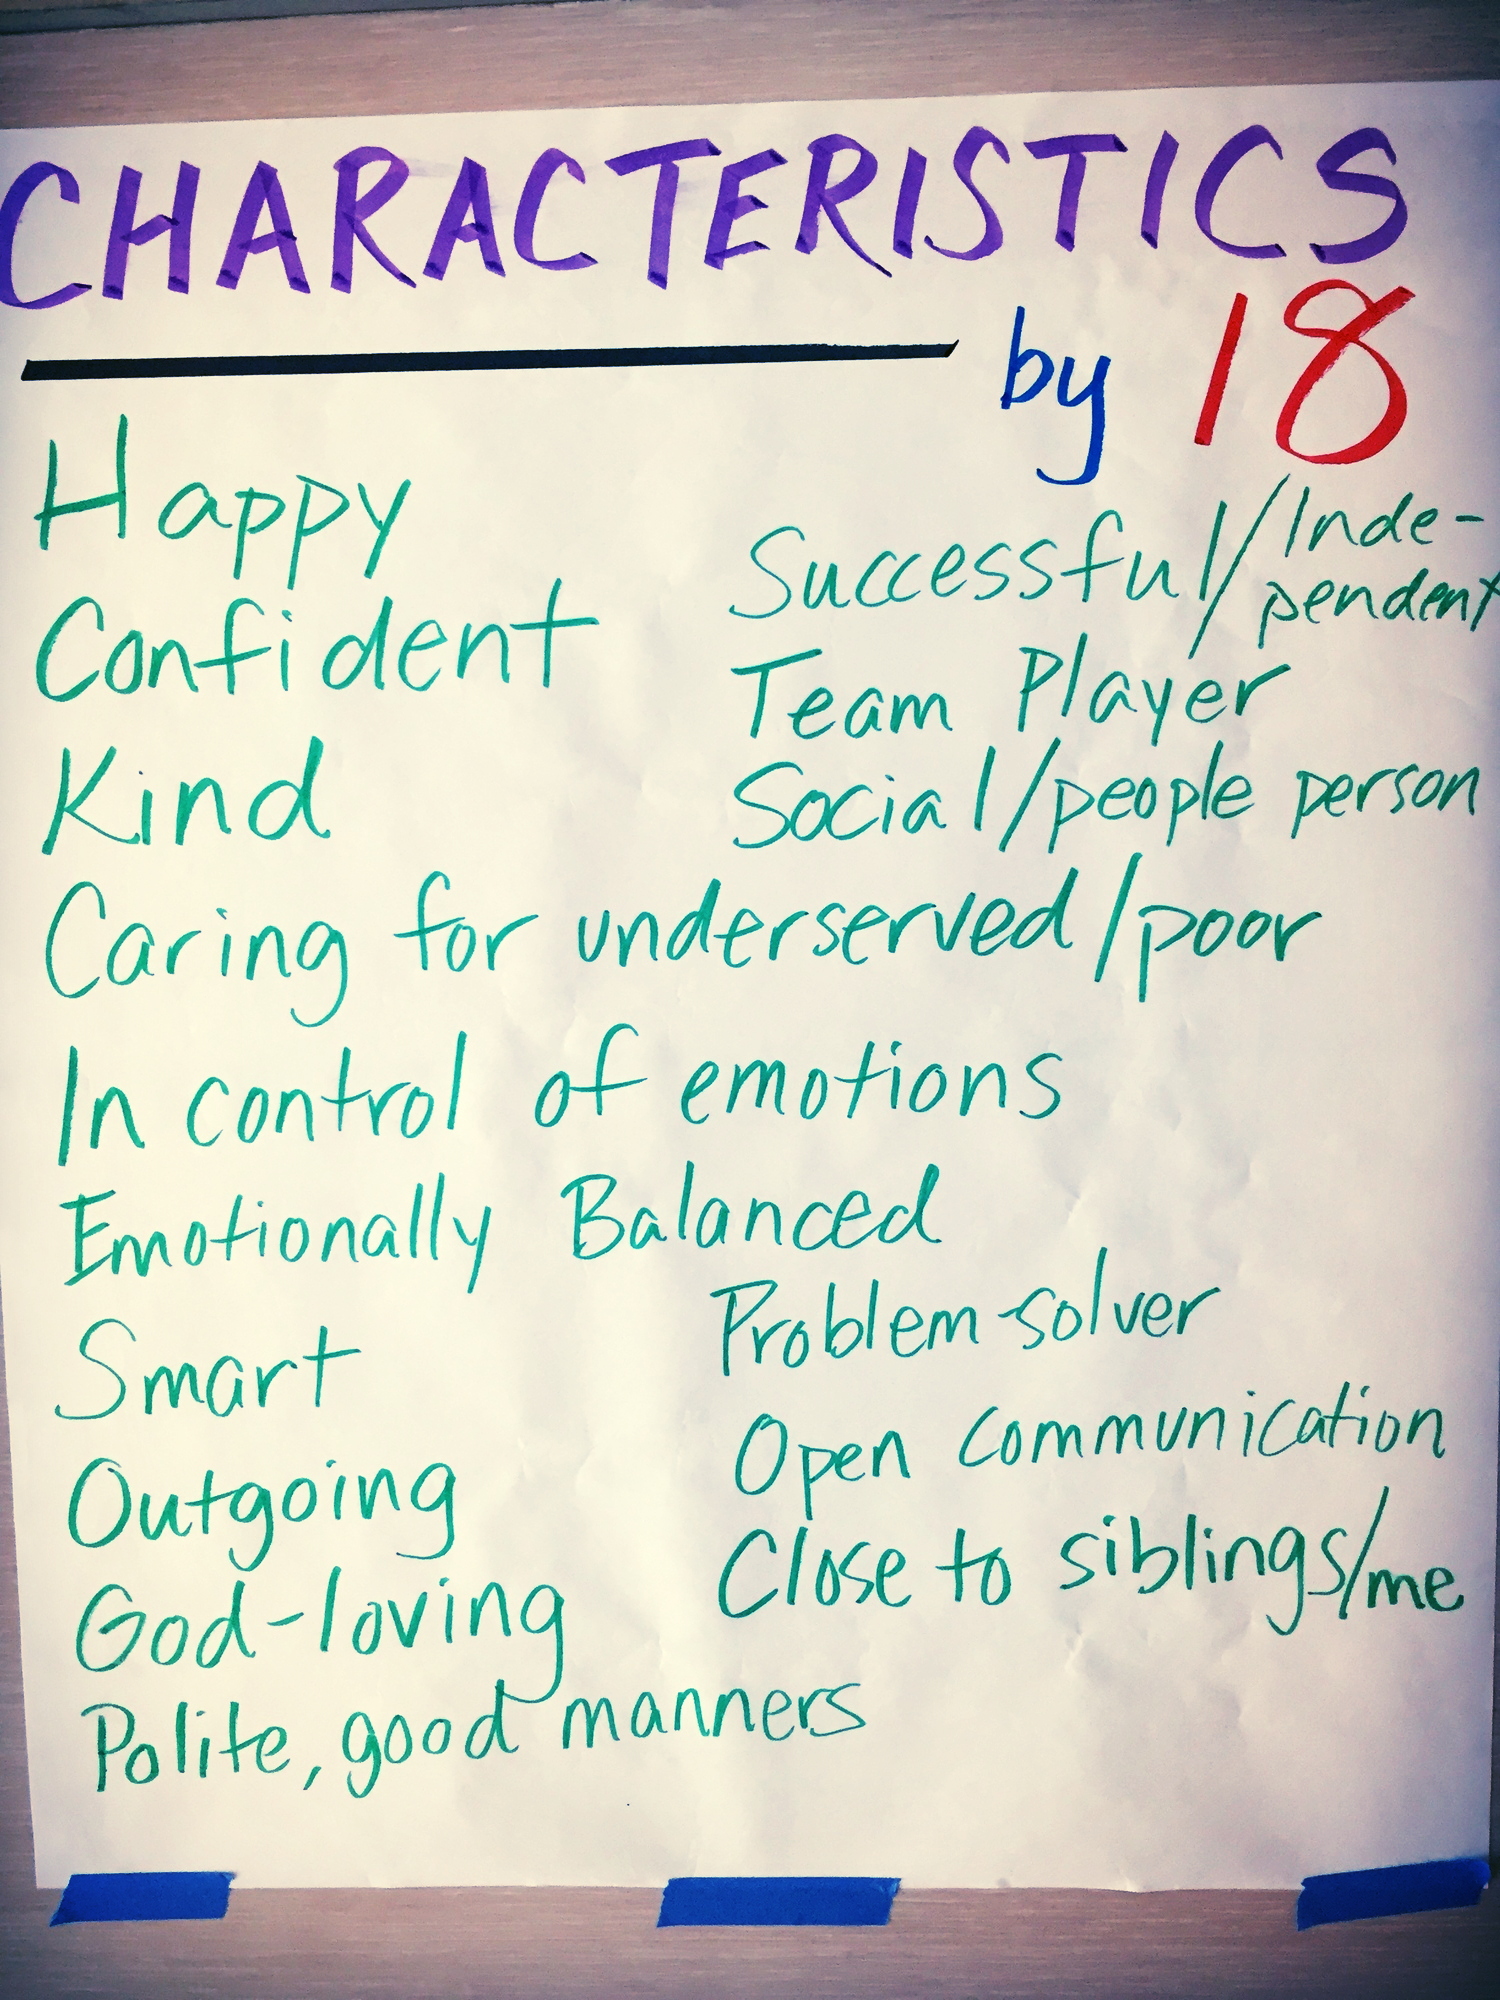 CHARACTERISTICS
by 18
Happy
Confident
Kind
Successful/Inde-
pendent
Team Player
Social/people person
Caring for underserved/poor
In control of emotions
Emotionally Balanced
Smart
Outgoing
God-loving
Polite, good manners
Problem-solver
Open communication
Close to siblings/me